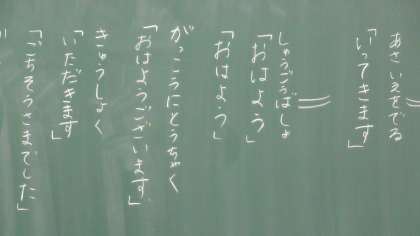 あさ いえをでる
「いってきます」
しゅうごうばしょ
「おはよう」
「おはよう」
がっこうにとうちゃく
「おはようございます」
きゅうしょく
「いただきます」
「ごちそうさまでした」